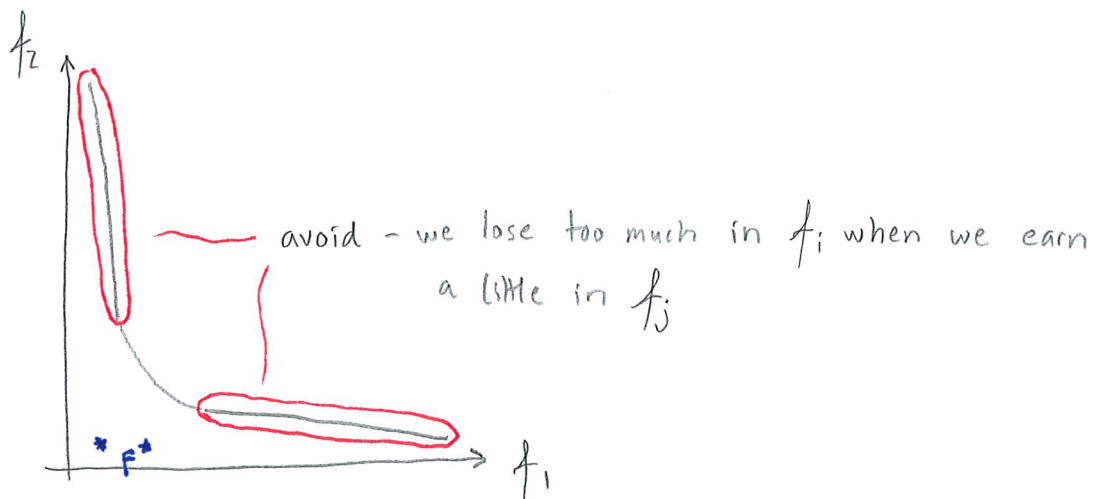 f₂
avoid - we lose too much in fᵢ when we earn
a little in fⱼ
* F *
f₁